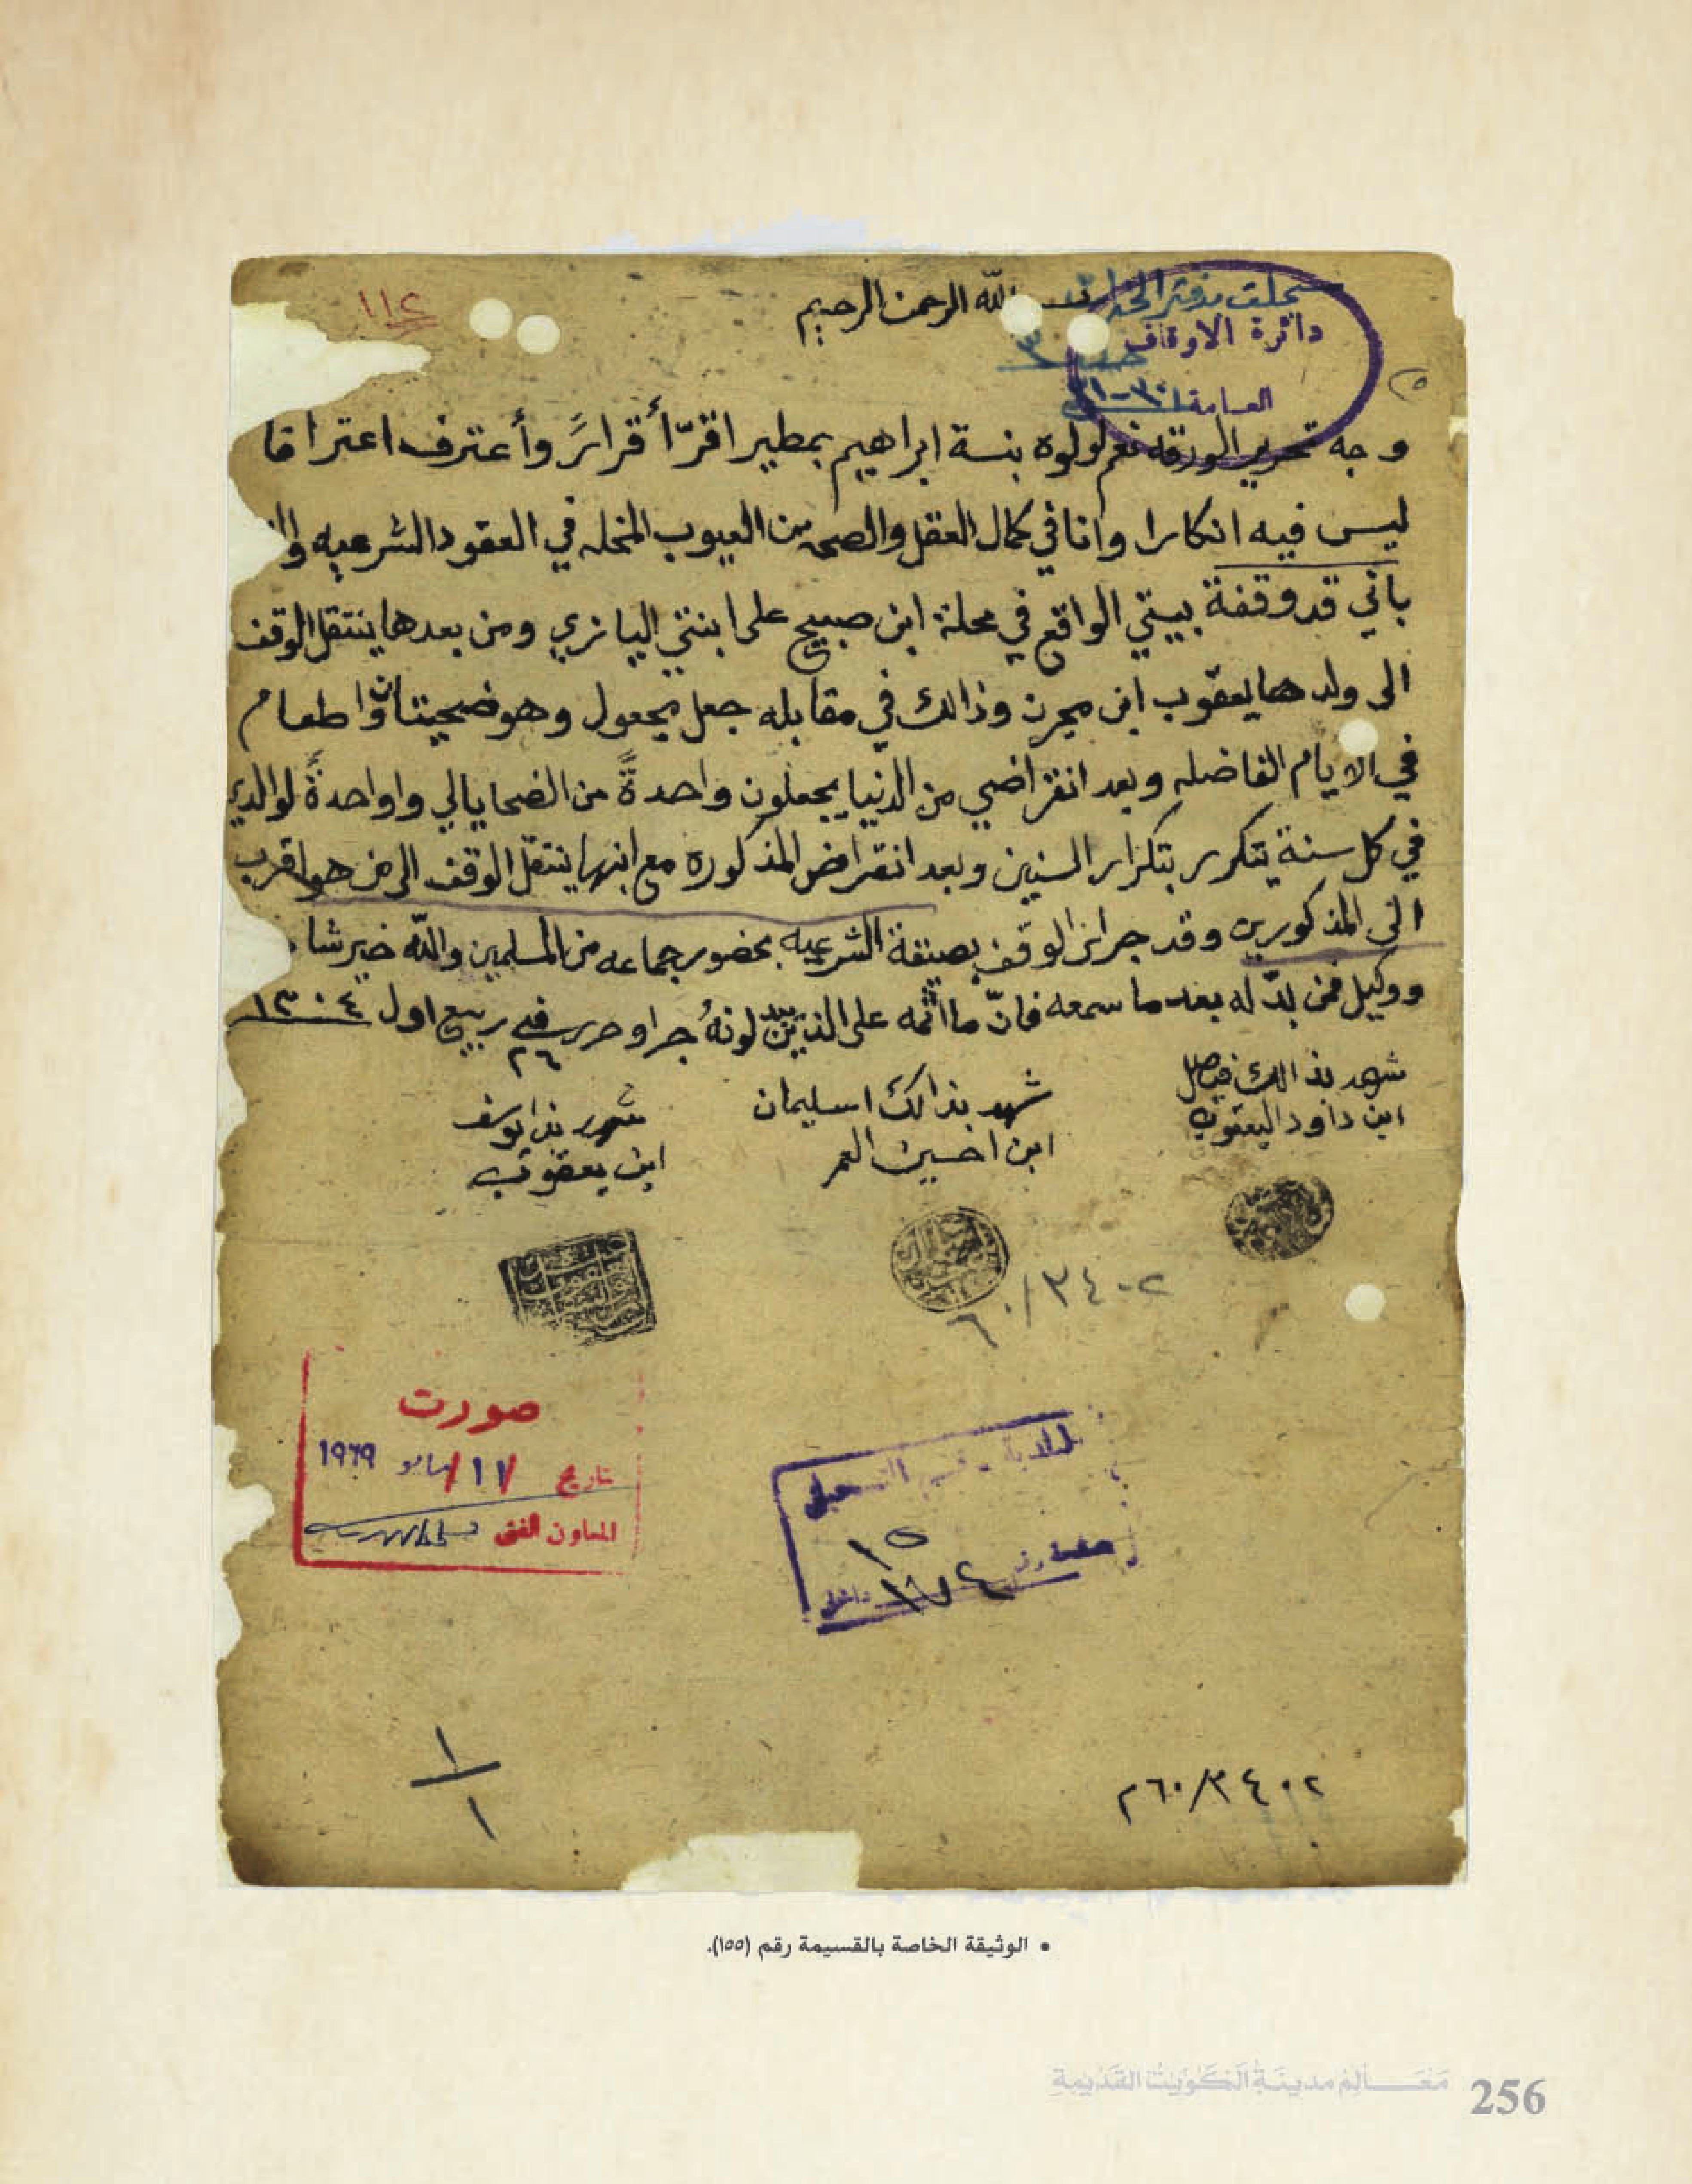 ١١٢
بسم الله الرحمن الرحيم
سجلت بدفتر
دائرة الاوقاف
العامة
وجه تحرير الورقه نعم لولوه بنة ابراهيم بمطير اقرّ أقرارً وأعترف اعترافا
ليس فيه انكارا وانا في كمال العقل والصحه من العيوب المخله في العقود الشرعيه
باني قد وقفة بيتي الواقع في محلة ابن صبيح على ابنتي اليازي ومن بعدها ينتقل الوقف
الى ولدها يعقوب ابن محرن وذالك في مقابله جعل مجعول وهو ضحيتان واطعام
في الايام الفاضله وبعد انقراضي من الدنيا يجعلون واحدةً من الضحايا لي واواحدةً لوالدي
في كل سنة يتكرر بتكرار السنين وبعد انقراض المذكوره مع ابنها ينتقل الوقف الى من هو اقرب
الى المذكورين وقد جرا الوقف بصيغة الشرعيه بحضور جماعه من المسلمين والله خير شا
ووكيل فمن بدّله بعد ما سمعه فانّ ما اثمه على الذين يبدلونهُ جرا وحرر في ٢٦ ربيع اول ١٣٠٤
شهد بذالك
ابن داود اليعقوب
شهد بذالك اسليمان
ابن احسين العمر
شهد بذا يوسف
ابن يعقوب
٣٤٠٢/٦٠
صورت
تاريخ ١١/ مايو ١٩٦٩
المعاون الفني
قسم التسجيل
١
١
٣٤٠٢/٦٠م
• الوثيقة الخاصة بالقسيمة رقم (١٥٥).
مَعَالِمُ مدينَةِ الكُوَيتْ القَدِيمَةِ 256